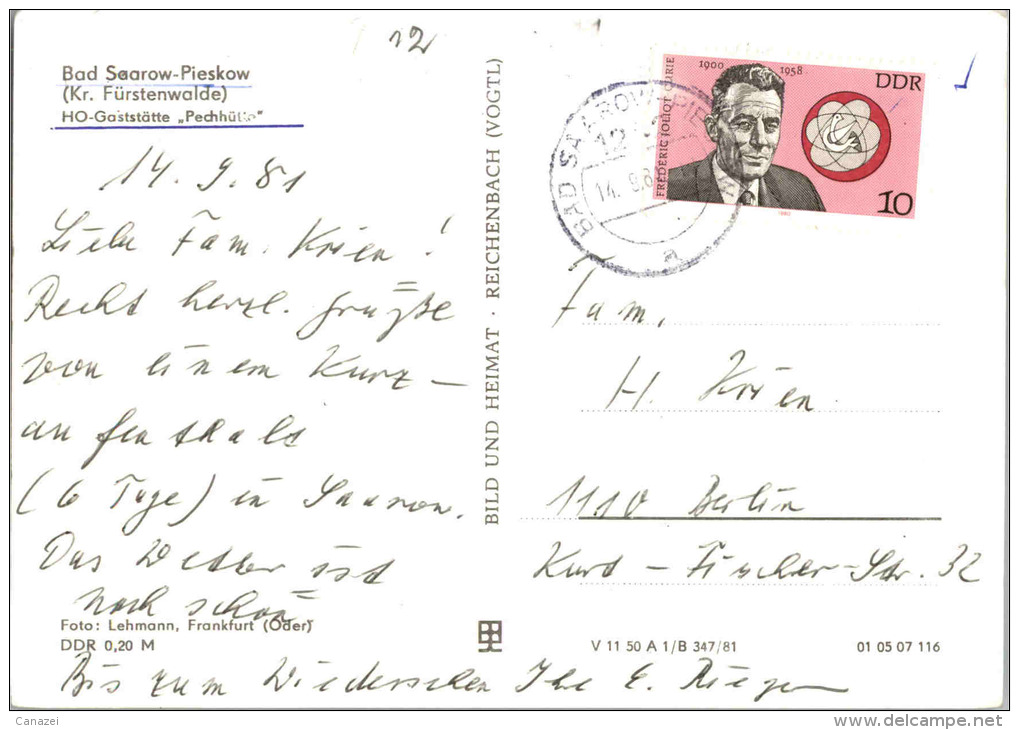 12
Bad Saarow-Pieskow
(Kr. Fürstenwalde)
HO-Gaststätte „Pechhütte"
14. 9. 81
Liebe Fam. Krien!
Recht herzl. Grüße
von einem Kurz-
aufenthalt
(6 Tage) in Saarow.
Das Wetter ist
noch schön
Foto: Lehmann, Frankfurt (Oder)
DDR 0,20 M
Bis zum Wiedersehen Ihr E.
BILD UND HEIMAT · REICHENBACH (VOGTL)
1900 1958
DDR
FRÉDÉRIC JOLIOT CURIE
10
1980
BAD SAAROW-PIESKOW
12
14. 9. 81
a
Fam.
H. Krien
1110 Berlin
Kurt-Fischer-Str. 32
V 11 50 A 1/B 347/81
01 05 07 116
Canazei
www.delcampe.net